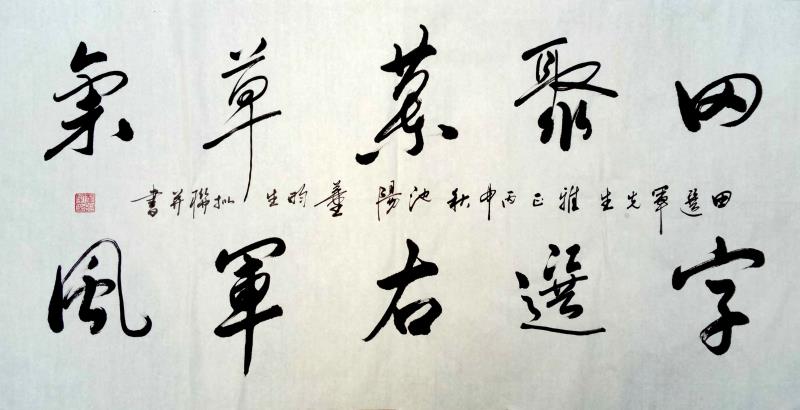 田聚草氣
田選軍先生雅正丙申秋池陽董昀生拟聯并書
字選右軍風